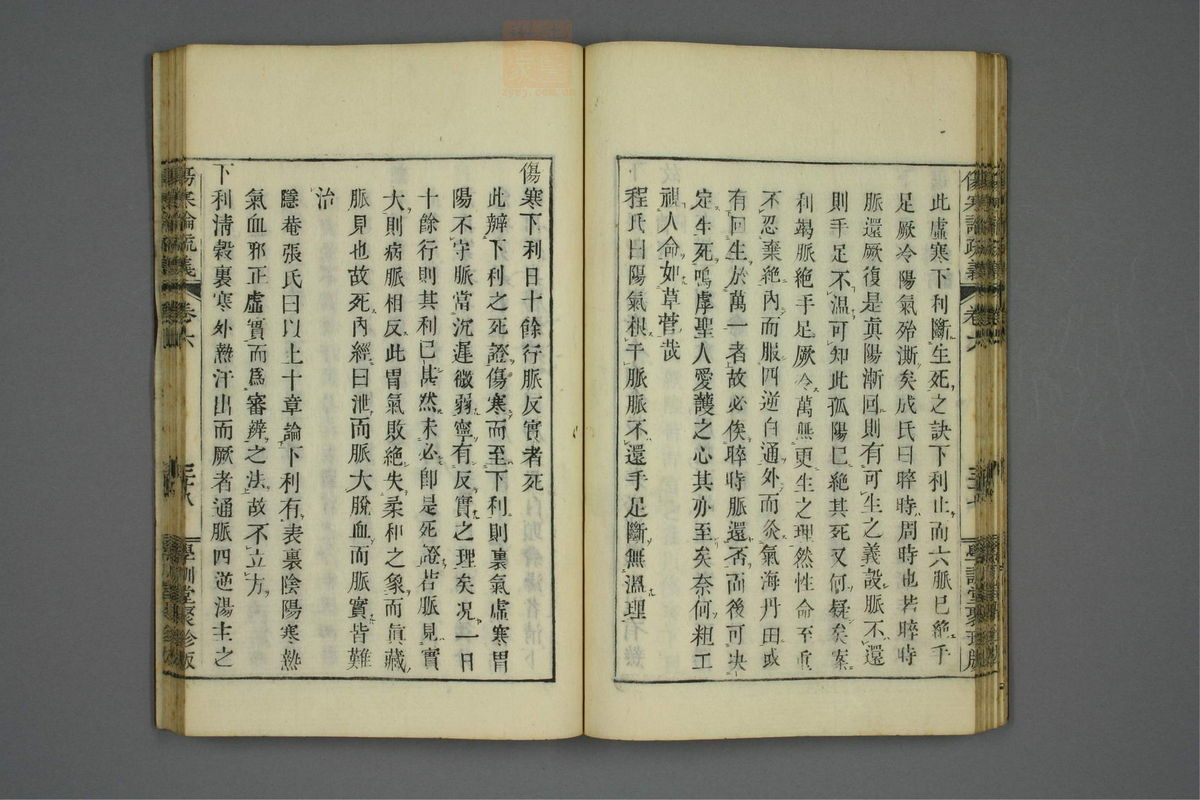 傷寒論疏義 卷六 學訓堂聚珍版
此虛寒下利斷生死之訣下利止而六脈已絶手
足厥冷陽氣殆澌矣成氏曰晬時周時也若晬時
脈還厥復是眞陽漸回則有可生之義設脈不還
則手足不溫可知此孤陽已絶其死又何疑矣案
利竭脈絶手足厥冷萬無更生之理然性命至重
不忍棄絶內而服四逆白通外而灸氣海丹田或
有回生於萬一者故必俟晬時脈還否而後可决
定生死嗚虖聖人愛護之心其亦至矣奈何粗工
視人命如草菅哉
程氏曰陽氣根于脈脈不還手足斷無溫理
傷寒下利日十餘行脈反實者死
此辨下利之死證傷寒而至下利則裏氣虛寒胃
陽不守脈當沉遲微弱寧有反實之理矣况一日
十餘行則其利已甚然未必卽是死證若脈見實
大則病脈相反此胃氣敗絶失柔和之象而眞藏
脈見也故死內經曰泄而脈大脫血而脈實皆難
治
隱菴張氏曰以上十章論下利有表裏陰陽寒熱
氣血邪正虛實而爲審辨之法故不立方
下利清穀裏寒外熱汗出而厥者通脈四逆湯主之
傷寒論疏義 卷六 三十八 學訓堂聚珍版